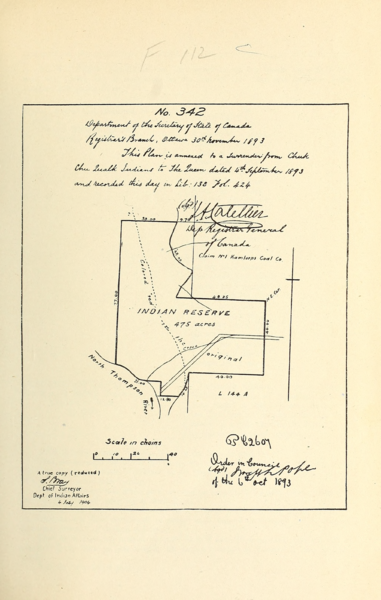 F 112 C
No. 342
Department of the Secretary of State of Canada
Registrar's Branch, Ottawa 30th November 1893
This Plan is annexed to a Surrender from Chuk
Chu Qualk Indians to The Queen dated 4th September 1893
and recorded this day in Lib: 132 Fol. 424
(sgd)
Dep. Registrar General
of Canada
Claim No 1 Kamloops Coal Co
INDIAN RESERVE
475 acres
original
North Thompson
River
L 164 A
Scale in chains
0 10 20 40
Order in Council
(sgd) Joseph Pope
of the 6th Oct 1893
a true copy (reduced)
Chief Surveyor
Dept of Indian Affairs